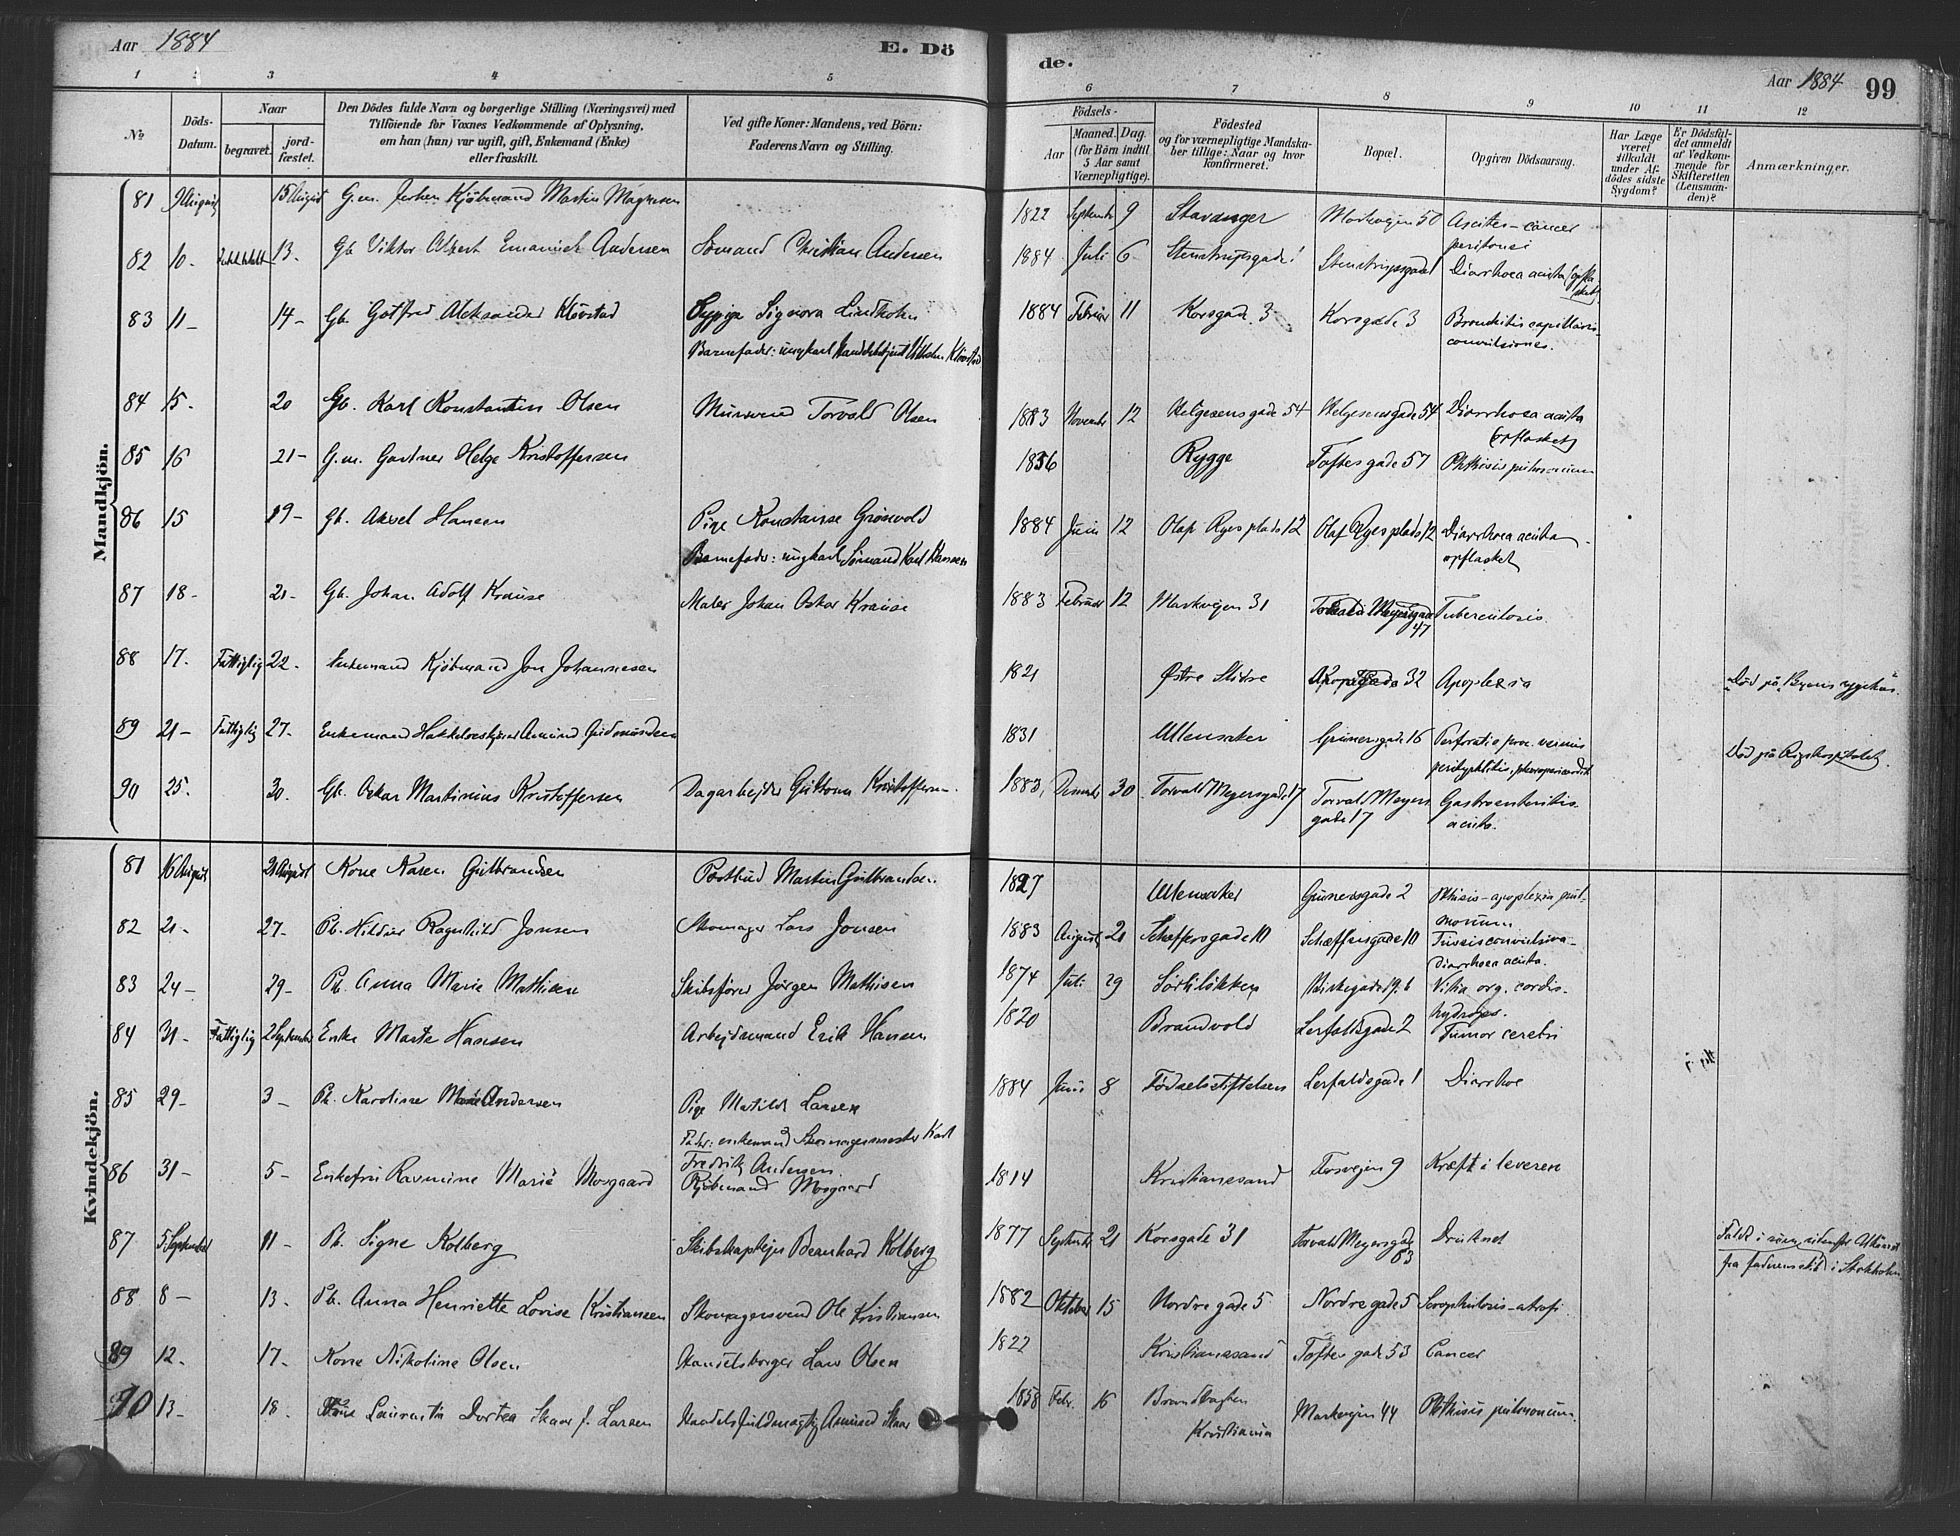 Aar 1884
E. Dö
de.
Aar 1884 99
1 2 3 4 5 6 7 8 9 10 11 12
No
Döds-Datum.
Naar
begravet.
jordfæstet.
Den Dödes fulde Navn og borgerlige Stilling (Næringsvei) med
Tilföiende for Voxnes Vedkommende af Oplysning,
om han (hun) var ugift, gift, Enkemand (Enke)
eller fraskilt.
Ved gifte Koner: Mandens, ved Börn:
Faderens Navn og Stilling.
Födsels-
Aar
Maaned. Dag.
(for Börn indtil
5 Aar samt
Værnepligtige).
Födested
og for værnepligtige Mandskaber tillige: Naar og hvor
konfirmeret.
Bopæl.
Opgiven Dödsaarsag.
Har Læge
været
tilkaldt
under Afdödes sidste
Sygdom?
Er Dödsfaldet anmeldt
af Vedkommende for
Skifteretten
(Lensmanden)?
Anmærkninger.
Mandkjön.
81 9 August 15 August G.m. Kjøbmand Martin Magnesen 1822 Septembr 9 Stavanger Markvejen 50 Ascites - cancer
peritonei
82 10- 13- Gb. Viktor Albert Emanuel Andersen Sömand Christian Andersen 1884 Juli 6 Stenstrupsgade 1 Stenstrupsgade 1 Diarrhoea acuta
83 11- 14- Gb. Gotfred Aleksander Klövstad Sypige Signora Lindholm 1884 Februar 11 Korsgade 3 Korsgade 3 Bronkitis capillaris-
convulsiones.
Barnefader: ungkarl Handelsbetjent Vilhelm Klövstad
84 15- 20 Gb. Karl Konstantin Olsen Mursvend Torvald Olsen 1883 November 12 Helgesensgade 54 Helgesensgade 54 Diarrhoea acuta
(opflasket)
85 16 21- G.m. Gartner Helge Kristoffersen 1856 Rygge Toftesgade 57 Phthisis pulmonum
86 15 19- Gb. Aksel Hansen Pige Konstanse Grösvold 1884 Juni 12 Olaf Ryes plads 12 Olaf Ryes plads 12 Diarrhoea acuta-
opflasket
Barnefader: ungkarl Sömand Karl Hansen
87 18- 21- Gb. Johan Adolf Krause Maler Johan Oskar Krause 1883 Februar 12 Markvejen 31 Torvald Meyersgade
47 Tuberculosis
88 17. Fattiglig 22- Enkemand Kjöbmand Jon Johannesen 1821 Østre Slidre 32 Apoplexia "Död på Byens sygehus"
89 21- Fattiglig 27- Enkemand Amund Gudmundsen 1831 Ullensaker Grünersgade 16 Perforatio proc. vermis
Död på Rigshospitalet.
90 25. 30. Gb. Oskar Martinius Kristoffersen Dagarbejder Kristoffersen 1883. Decembr 30 Torvald Meyersgade 17 Torvald Meyers
gade 17 Gastroenteritis
acuta.
Kvindekjön.
81 16 August 21 August Kone Karen Gulbrandsen Postbud Martin Gulbrandsen 1827 Ullensaker Grünersgade 2 Phthisis - apoplexia pul-
monum
82 21- 27- Pb. Ragnhild Jonsen Skomager Lars Jonsen 1883 August 21 Schæffersgade 10 Schæffersgade 10 Tussis convulsiva-
diarrhoea acuta.
83 24- 29- Pb. Anna Marie Mathisen Skibsfører Jörgen Mathisen 1874 Juli 29 Sörlilökken Birkegade 19.b Vitia org. cordis-
hydrops.
84 31- Fattiglig 2 September Enke Marte Hansen Arbejdsmand Erik Hansen 1820 Brandvold Lerfaldsgade 2 Tumor cerebri
85 29- 3- Pb. Karoline Marie Andersen Pige Matilde Larsen 1884 Juni 8 Födselsstiftelsen Lerfaldsgade 1 Diarrhoe
Fader: enkemand Skomagermester Karl
Fredrik Andersen.
86 31- 5- Enkefru Rasmine Marie Mosgaard Kjöbmand Mosgaard 1814 Kristianssand Fossvejen 9 Kræft i leveren
87 5 September 11- Pb. Signe Kolberg Skibskaptejn Bernhard Kolberg 1877 Septembr 21 Korsgade 31 Torvald Meyersgade
53 Druknet
Faldt i söen
fra faderens skib i Stokholm
88 8- 13. Pb. Anna Henriette Lovise Kristiansen Skomagersvend Ole Kristiansen 1882 Oktober 15 Nordregade 5 Nordregade 5 Scrophulosis - atrofi
89 12. 17- Kone Nikoline Olsen Handelsborger Lars Olsen 1822 Kristianssand Toftesgade 53 Cancer
90 13- 18. Laurentia Dortea Skaar f. Larsen Handelsfuldmægtig Asmund Skaar 1858 Febr. 16 Brandvagten
Kristiania Markvejen 44 Phthisis pulmonum.